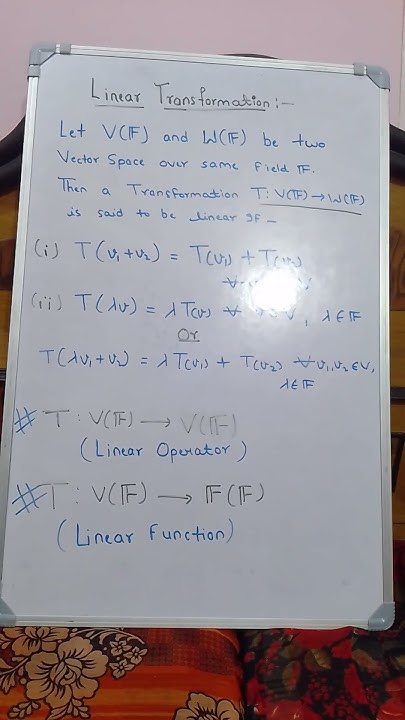 Linear Transformation :-
Let V(𝔽) and W(𝔽) be two
Vector Space over same Field 𝔽.
Then a Transformation T: V(𝔽) → W(𝔽)
is said to be linear If -
(i) T(v₁+v₂) = T(v₁) + T(v₂)
∀
(ii) T(λv) = λ T(v) ∀ V, λ ∈ 𝔽
Or
T(λv₁+v₂) = λ T(v₁) + T(v₂) ∀ v₁,v₂ ∈ V,
λ∈𝔽
# T : V(𝔽) → V(𝔽)
(Linear Operator)
# T : V(𝔽) → 𝔽(𝔽)
(Linear Function)